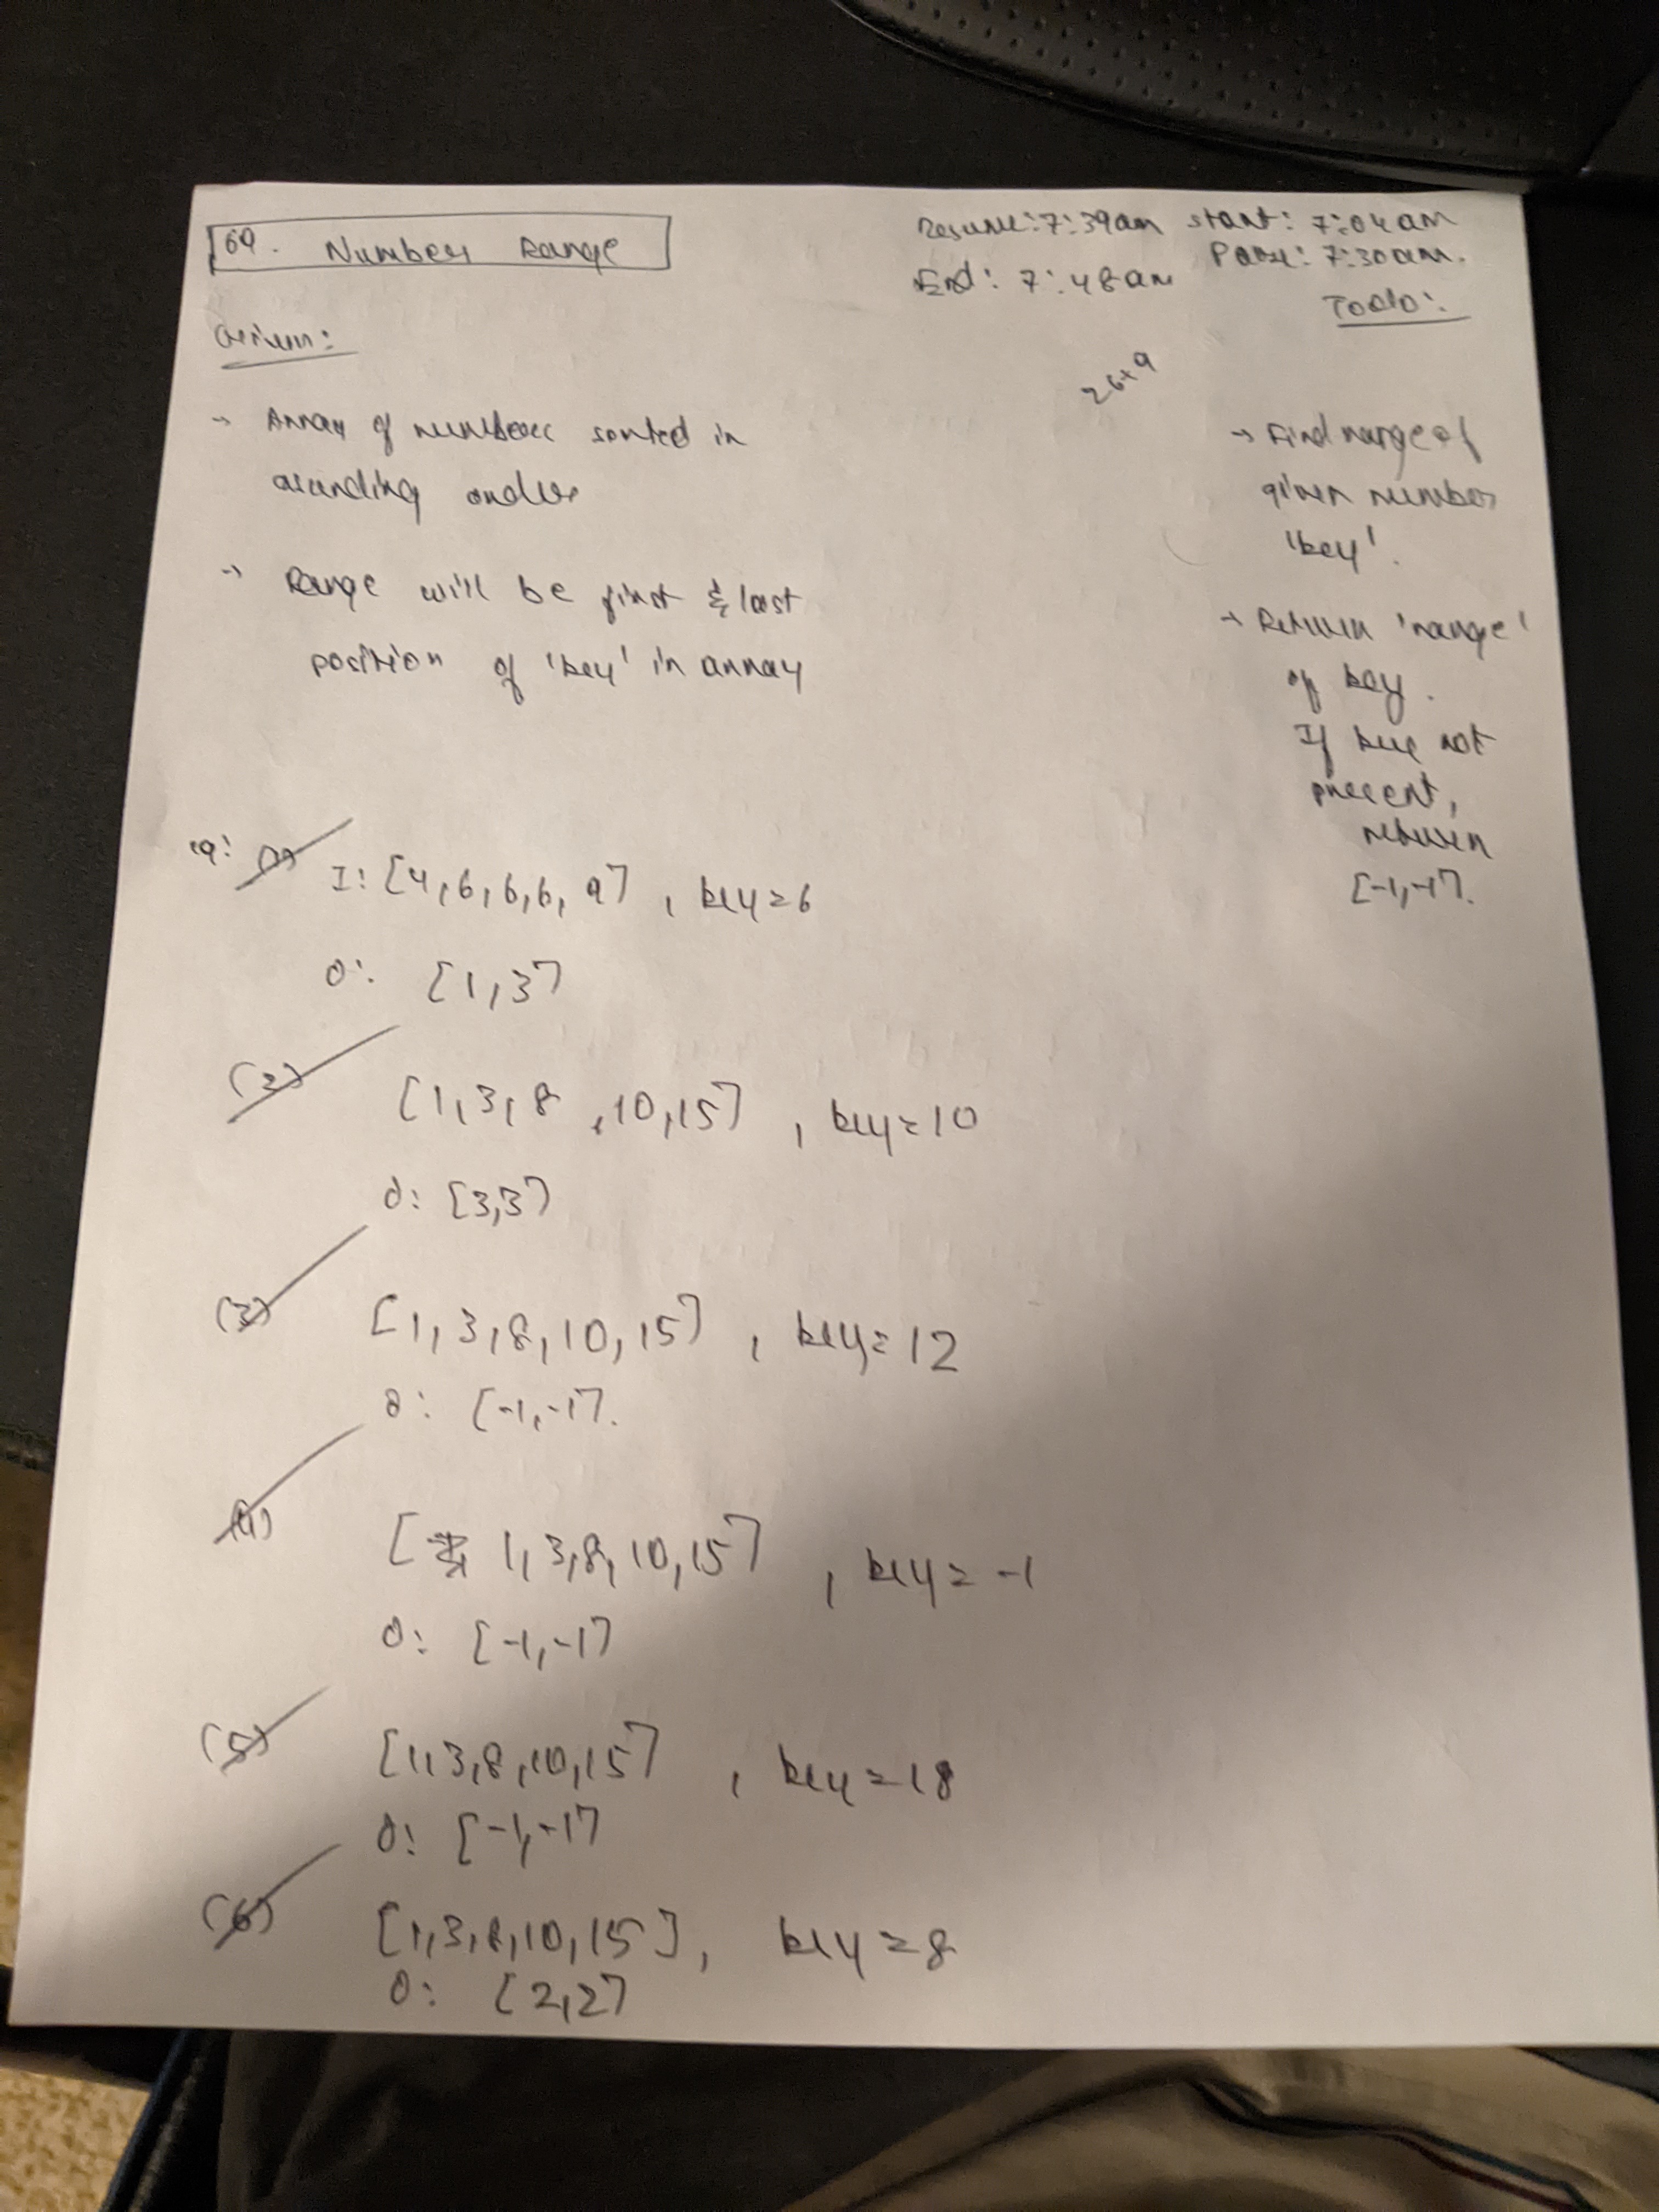 69. Number Range
Resume: 7:39am start: 7:04am
End: 7:48am Pause: 7:30am.
Todo:
Given:
26+9
→ Array of numbers sorted in
ascending order
→ Range will be first & last
position of 'key' in array
→ Find range of
given number
'key'.
→ Return 'range'
of key.
If key not
present,
return
[-1,-1].
eg: (1) I: [4,6,6,6,9], key=6
O: [1,3]
(2) [1,3,8,10,15], key=10
O: [3,3]
(3) [1,3,8,10,15], key=12
O: [-1,-1].
(4) [1,3,8,10,15], key=-1
O: [-1,-1]
(5) [1,3,8,10,15], key=18
O: [-1,-1]
(6) [1,3,8,10,15], key=8
O: [2,2]